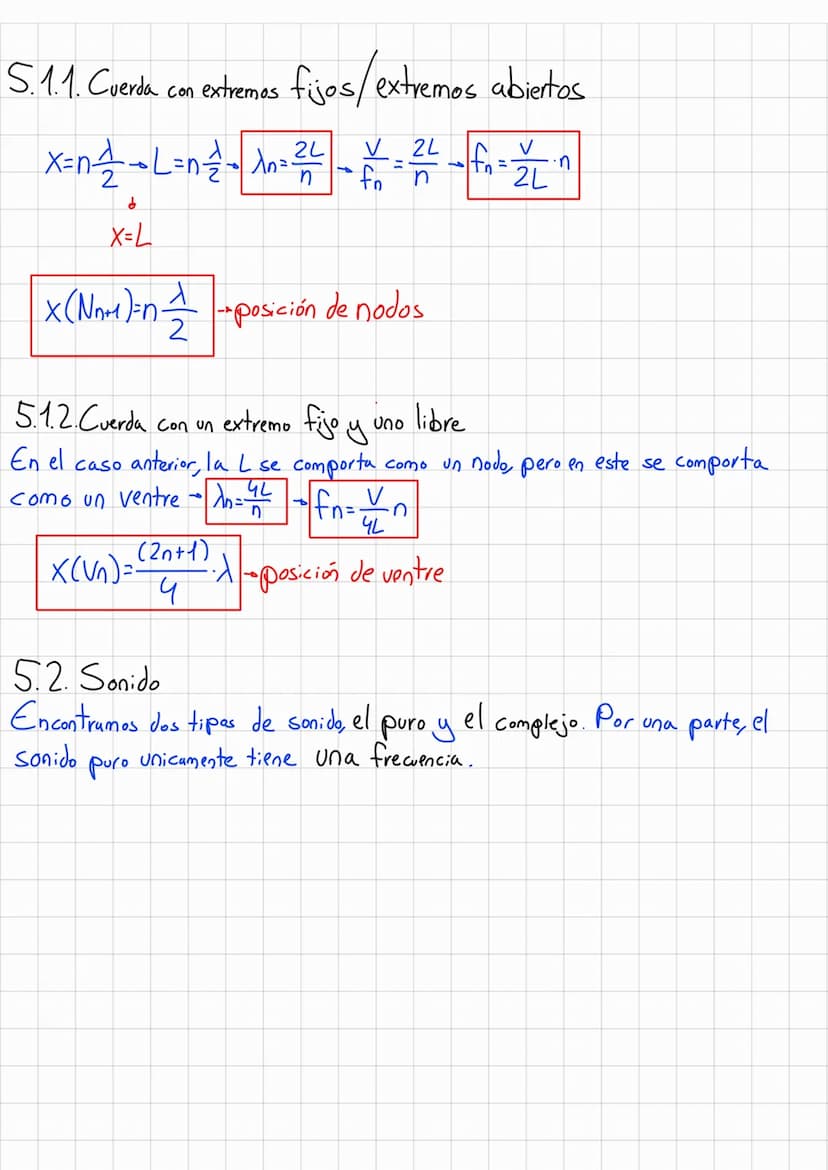 5.1.1. Cuerda con extremos fijos/extremos abiertos
X=n λ/2 → L=n λ/2 → λn= 2L/n → V/fn = 2L/n → fn = V/2L · n
↓
X=L
X(Nn+1)=n λ/2 → posición de nodos
5.1.2. Cuerda con un extremo fijo y uno libre
En el caso anterior, la L se comporta como un nodo, pero en este se comporta
como un ventre → λn= 4L/n → fn= V/4L n
X(Vn)= (2n+1)/4 · λ → posición de ventre
5.2. Sonido
Encontramos dos tipos de sonido, el puro y el complejo. Por una parte, el
sonido puro unicamente tiene una frecuencia.